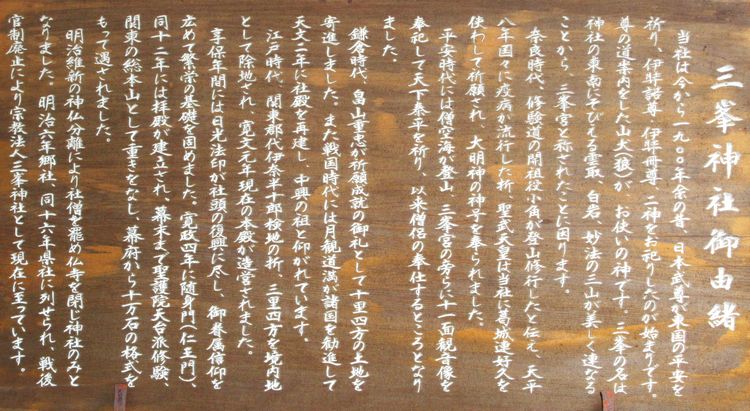 三峯神社御由緒
当社は今から一九〇〇年余の昔、日本武尊が東国の平安を
祈り、伊弉諾尊・伊弉冊尊二神をお祀りしたのが始まりです。
尊の道案内をした山犬(狼)が、お使いの神です。三峯の名は
神社の東南にそびえる雲取、白岩、妙法の三山が美しく連なる
ことから、三峯宮と称されたことに因ります。
奈良時代、修験道の開祖役小角が登山修行したと伝え、天平
八年国々に疫病が流行した折、聖武天皇は当社に葛城連好久を
使わして祈願され、大明神の神号を奉られました。
平安時代には僧空海が登山、三峯宮の旁らに十一面観音像を
奉祀して天下泰平を祈り、以来僧侶の奉仕するところとなり
ました。
鎌倉時代、畠山重忠が祈願成就の御礼として十里四方の土地を
寄進しました。また戦国時代には月観道満が諸国を勧進して
天文二年に社殿を再建し、中興の祖と仰がれています。
江戸時代、関東郡代伊奈半十郎検地の折、三里四方を境内地
として除地され、寛文元年現在の本殿が造営されました。
享保年間には日光法印が社頭の復興に尽し、御眷属信仰を
広めて繁栄の基礎を固めました。寛政四年に随身門(仁王門)、
同十二年には拝殿が建立され、幕末まで聖護院天台派修験、
関東の総本山として重きをなし、幕府から十万石の格式を
もって遇されました。
明治維新の神仏分離により社僧を罷め仏寺を閉じ神社のみと
なりました。明治六年郷社、同十六年県社に列せられ、戦後
官制廃止により宗教法人三峯神社として現在に至っています。